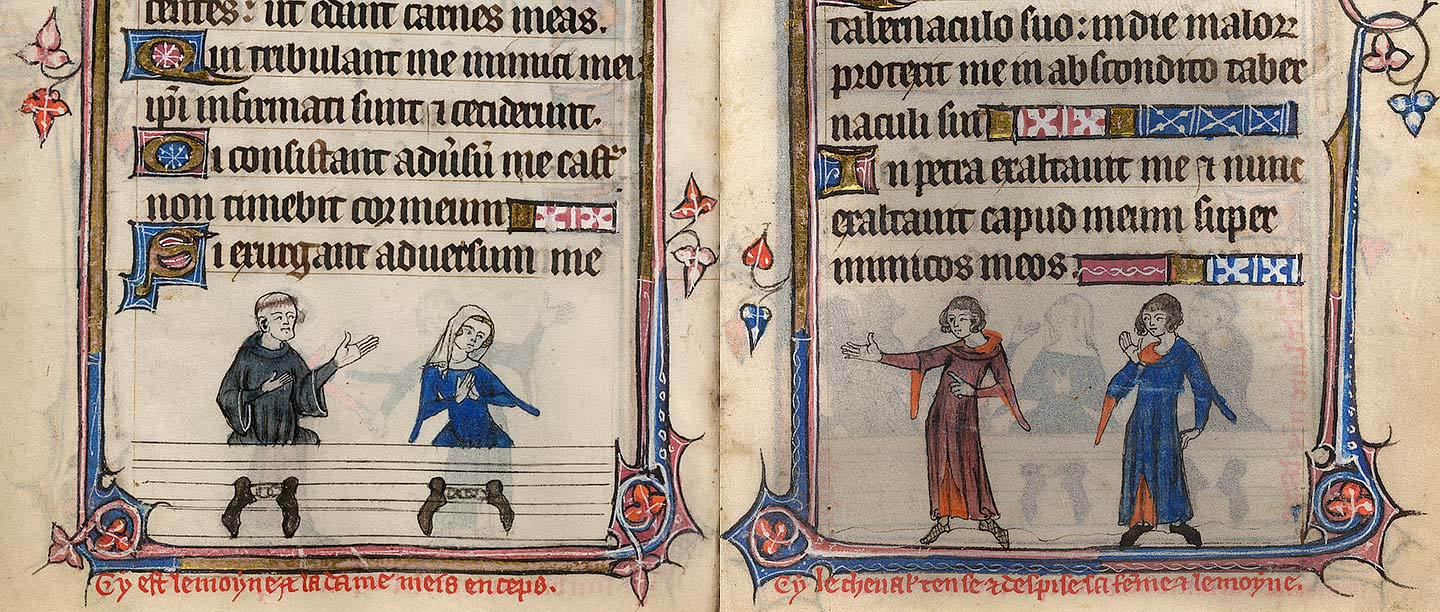 centes: ut edant carnes meas.
Qui tribulant me inimici mei
ip̄i infirmati sunt ⁊ ceciderunt.
Si consistant adūsū me castᵃ
non timebit cor meum
Si exurgant aduersum me
Cy est le moyne ⁊ la dame meis en ceps.
tabernaculo suo: in die maloꝝ
protexit me in abscondito taber
naculi sui
In petra exaltauit me ⁊ nunc
exaltauit capud meum super
inimicos meos.
Cy le cheualr̄ tense ⁊ despise sa feme ⁊ le moyne.